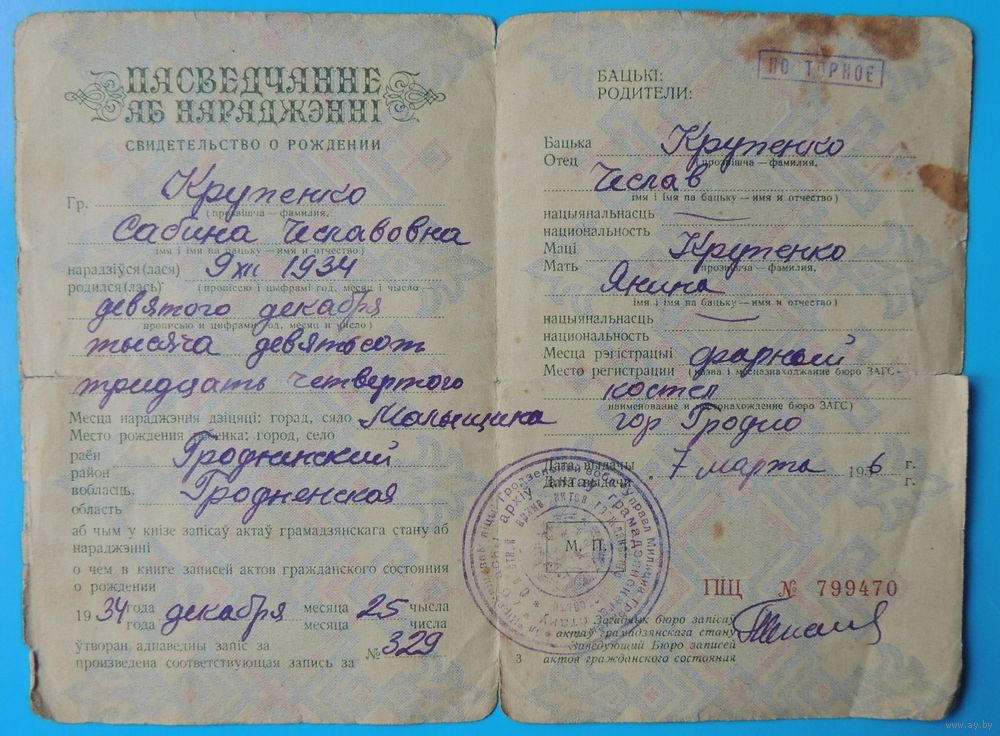 ПАСВЕДЧАННЕ
АБ НАРАДЖЭННІ
СВИДЕТЕЛЬСТВО О РОЖДЕНИИ
Гр. Крутенко
(прозвішча — фамилия,
Сабина Чеславовна
імя і імя па бацьку — имя и отчество)
нарадзіўся(лася) 9 XII 1934
родился(лась) (прописею і цыфрамі год, месяц і чысло —
девятого декабря
прописью и цифрами год, месяц и число)
тысяча девятьсот
тридцать четвертого
Месца нараджэння дзіцяці: горад, сяло Малыщина
Место рождения ребенка: город, село
раён Гродненский
район
вобласць, Гродненская
область
аб чым у кнізе запісаў актаў грамадзянскага стану аб
нараджэнні
о чем в книге записей актов гражданского состояния
о рождении
1934 года декабря месяца 25 чысла
года месяца числа
ўтворан адпаведны запіс за
произведена соответствующая запись за № 329
ПОВТОРНОЕ
БАЦЬКІ:
РОДИТЕЛИ:
Бацька Крутенко
Отец (прозвішча — фамилия,
Чеслав
імя і імя па бацьку — имя и отчество)
нацыянальнасць
национальность
Маці Крутенко
Мать прозвішча — фамилия,
Янина
імя і імя па бацьку — имя и отчество)
нацыянальнасць
национальность
Месца рэгістрацыі фарный
Место регистрации (назва і месцазнаходжанне бюро ЗАГС —
костел
наименование и местонахождение бюро ЗАГС)
гор Гродно
Дата выдачы 7 марта 1956 г.
Дата выдачи г.
М. П.
ПЩ № 799470
Загадчык бюро запісаў
актаў грамадзянскага стану
Заведующий Бюро записей
актов гражданского состояния
3
www.ay.by